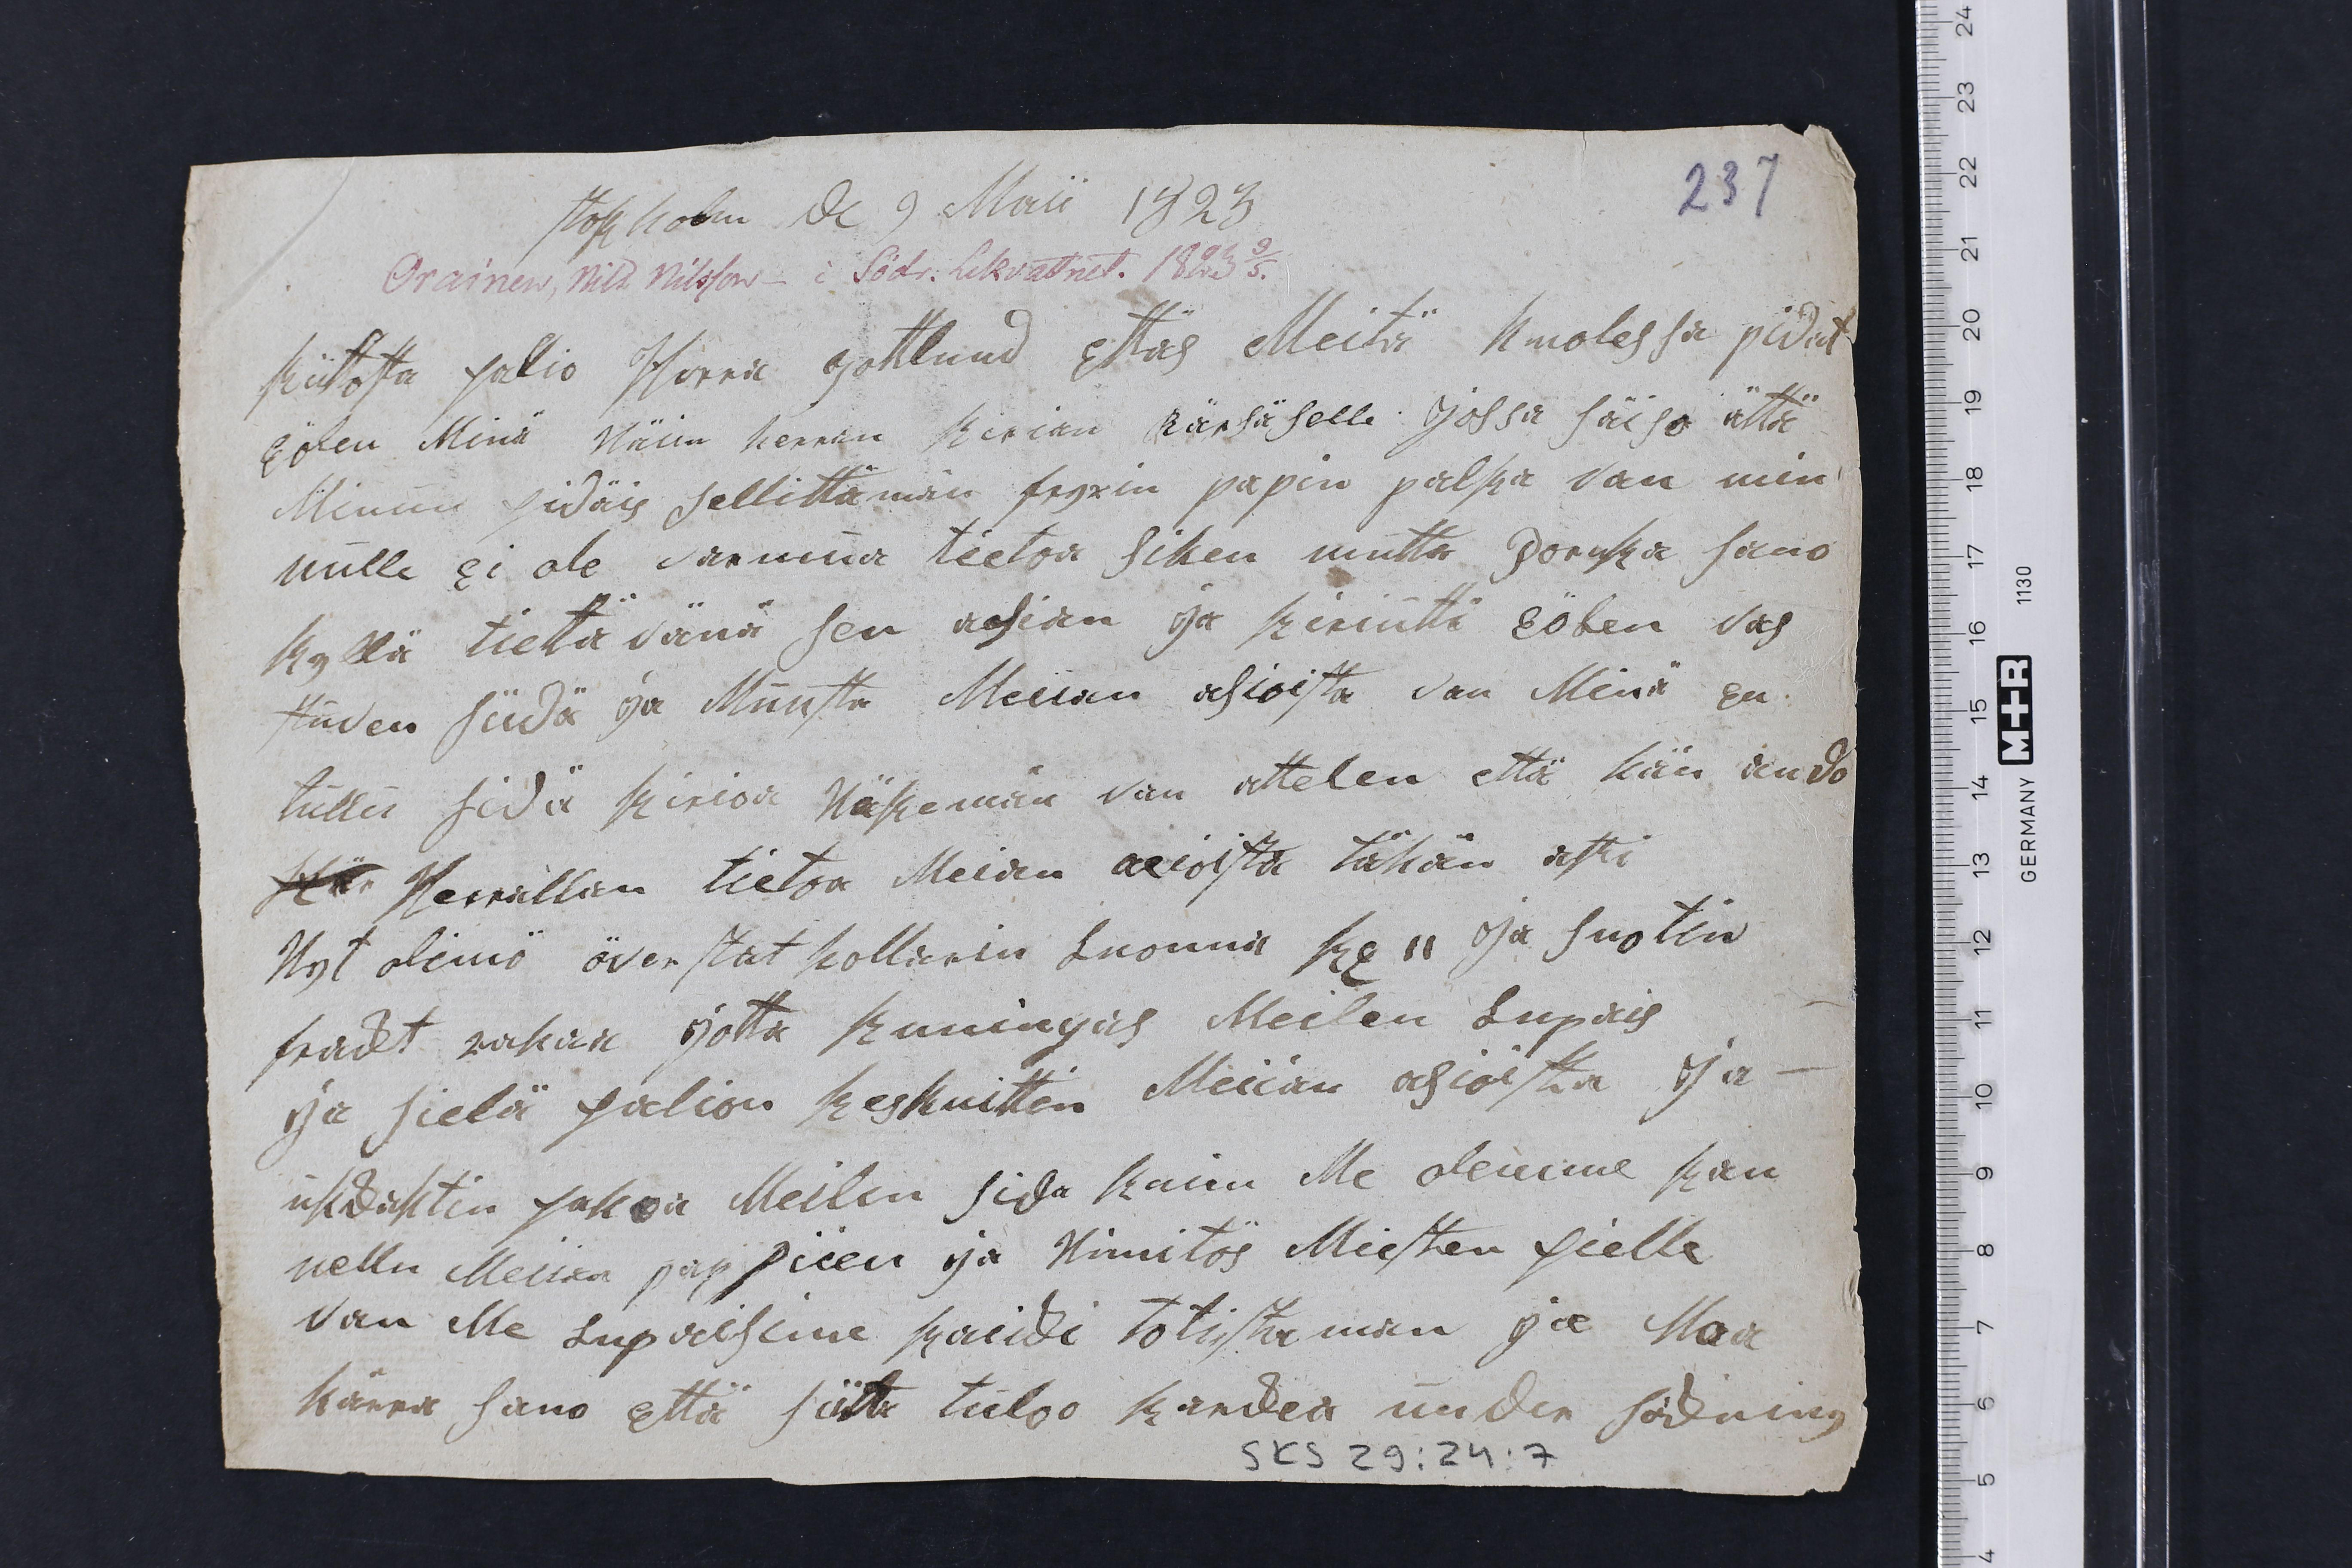 stokholm de 9 Maii 1823
237
Orainen, Nils Nilsson – i Södr. Lekvattnet. 1823 9/5.
kiitosta palio Herra gottlund ettäs Meitä huolessa pidät
eölen Minä Näin herran kirian Räisäselle jossa säiso ättä
Minun pidäis sellittämän frykin papin palka van min
nulle ei ole varmua tietoa siken mutta Poruka sano
kyllä tietävänä sen asian ja kirjutti eölen vas
stuven siidä ja Muusta Meiian asioista van Minä en
tullu sidä kirioa Näkemän van attelen että hän ando
Herrallan tietoa Meian acioista tähän asti
Nyt olimö överstat hollarin Luonna kq 11 ja suotin
fradt rahaa jotta kuningas Meilen Lupais
ja sielä palion keskuittin Meiian asioista ja
uhdahtin pakoa Meilen sida kuin Me olemme kan
nellu Meiian pappiien ja Nimitös Miesten pielle
van Me Lupaisime kaidi totistaman ja Maa
härra sano että siitä tuloo kardea under södning
SKS 29:24:7
24
23
22
21
20
19
18
17
16
15
14
13
12
11
10
9
8
7
6
5
4
GERMANY M+R 1130